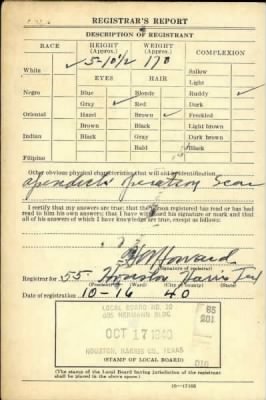 REGISTRAR'S REPORT
DESCRIPTION OF REGISTRANT
RACE HEIGHT (Approx.) WEIGHT (Approx.) COMPLEXION
White ✓ 5-10½ 170 Sallow
EYES HAIR Light
Negro Blue Blonde Ruddy ✓
Gray ✓ Red Dark
Oriental Hazel Brown ✓ Freckled
Brown Black Light brown
Indian Black Gray Dark brown
Bald Black
Filipino
Other obvious physical characteristics that will aid in identification
Appendicitis Operation Scar
I certify that my answers are true; that the person registered has read or has had read to him his own answers; that I have witnessed his signature or mark and that all of his answers of which I have knowledge are true, except as follows:
Howard
(Signature of registrar)
Registrar for 55 Houston Harris Tex
(Precinct) (Ward) (City or county) (State)
Date of registration 10-16 40
LOCAL BOARD NO. 10
605 HERMANN BLDG
OCT 17 1940
HOUSTON, HARRIS CO. TEXAS
(STAMP OF LOCAL BOARD)
85
201
010
(The stamp of the Local Board having jurisdiction of the registrant shall be placed in the above space.)